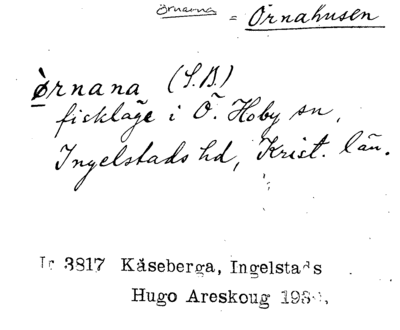 örnarna = Örnahusen
ørnana (S.B.)
fiskläge i Ö. Hoby sn,
Ingelstads hd, Krist. län.
3817 Kåseberga, Ingelstads
Hugo Areskoug